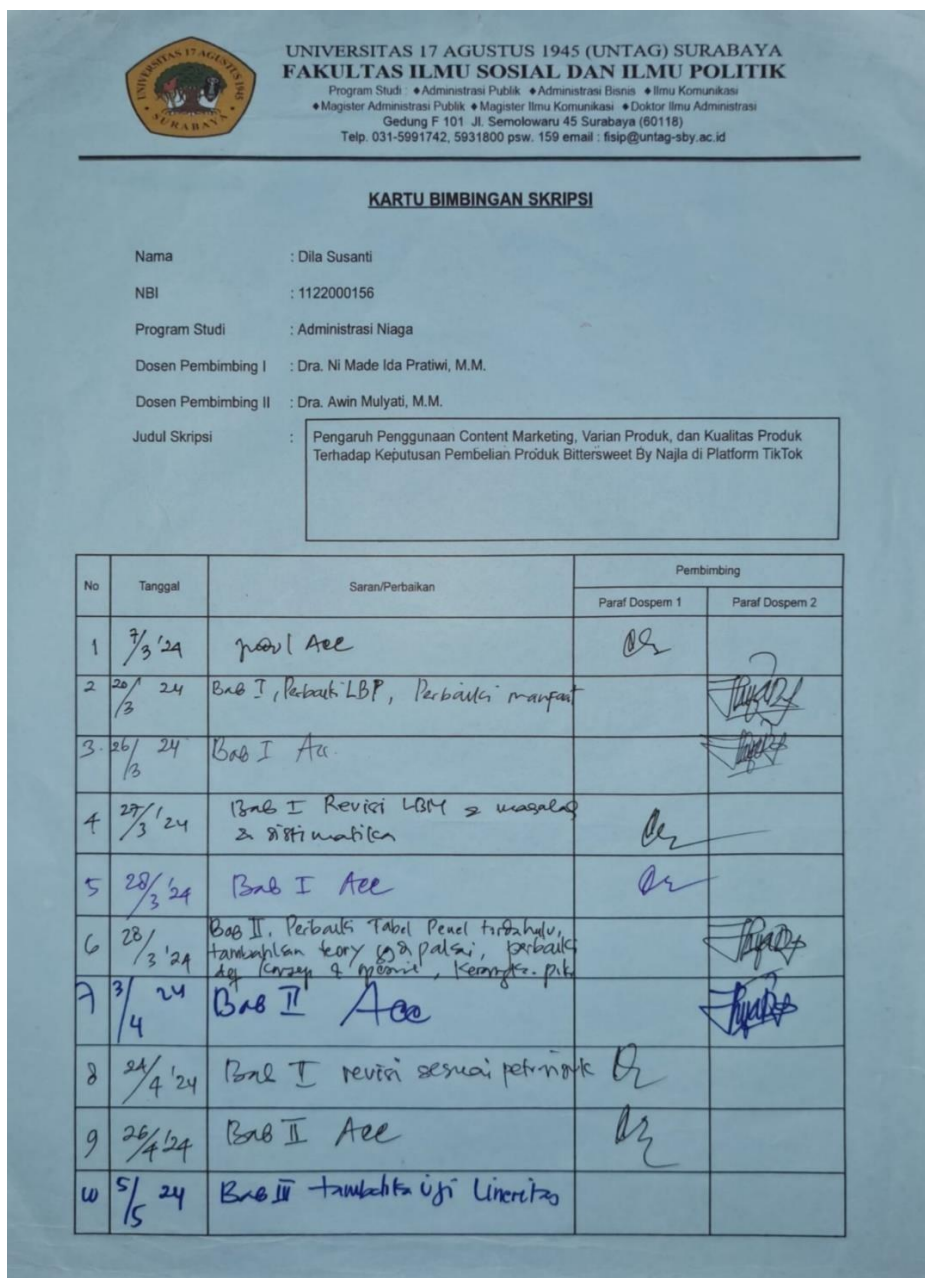 UNIVERSITAS 17 AGUSTUS 1945
SURABAYA
UNIVERSITAS 17 AGUSTUS 1945 (UNTAG) SURABAYA
FAKULTAS ILMU SOSIAL DAN ILMU POLITIK
Program Studi : ◆Administrasi Publik ◆Administrasi Bisnis ◆Ilmu Komunikasi
◆Magister Administrasi Publik ◆Magister Ilmu Komunikasi ◆Doktor Ilmu Administrasi
Gedung F 101 Jl. Semolowaru 45 Surabaya (60118)
Telp. 031-5991742, 5931800 psw. 159 email : fisip@untag-sby.ac.id
KARTU BIMBINGAN SKRIPSI
Nama : Dila Susanti
NBI : 1122000156
Program Studi : Administrasi Niaga
Dosen Pembimbing I : Dra. Ni Made Ida Pratiwi, M.M.
Dosen Pembimbing II : Dra. Awin Mulyati, M.M.
Judul Skripsi : Pengaruh Penggunaan Content Marketing, Varian Produk, dan Kualitas Produk
Terhadap Keputusan Pembelian Produk Bittersweet By Najla di Platform TikTok
No Tanggal Saran/Perbaikan Pembimbing
Paraf Dospem 1 Paraf Dospem 2
1 7/3 '24 Acc
2 20/3 24 Bab I, Perbaiki LBP, Perbaiki manfaat
3. 26/3 24 Bab I Acc.
4 27/3 '24 Bab I Revisi LBM & masalah
& sistimatika
5 28/3 '24 Bab I Acc
6 28/3 '24 Bab II, Perbaiki Tabel Penel terdahulu,
tambahkan teory yg dipakai, perbaiki
def konsep & operasi, Kerangka pikir
7 3/4 24 Bab II Acc
8 24/4 '24 Bab II revisi sesuai petunjuk
9 26/4 '24 Bab II Acc
10 5/5 24 Bab III tambahka Uji Lineritas